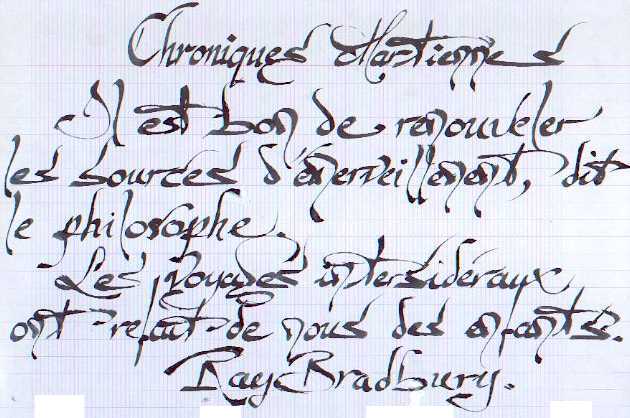 Chroniques Martiennes
Il est bon de renouveler
les sources d'émerveillement, dit
le philosophe.
Les voyages intersidéraux
ont refait de nous des enfants.
Ray Bradbury.